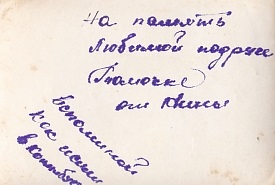 На память
Любимой подруге
Люлочке
от Нины
Вспоминай
как
в